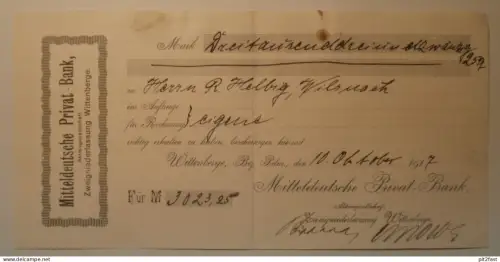 Mitteldeutsche Privat Bank,
Aktiengesellschaft
Zweigniederlassung Wittenberge.
Mark Dreitausenddreiundzwanzig
25 Pf
von Herrn R Helbig, Wilsnack
im Auftrage
für Rechnung } eigene
richtig erhalten zu haben, bescheinigen hiermit
Wittenberge, Bez. Potsdam, 10. Oktober 1917
Mitteldeutsche Privat-Bank,
Aktiengesellschaft.
Zweigniederlassung Wittenberge
Für M 3023,25